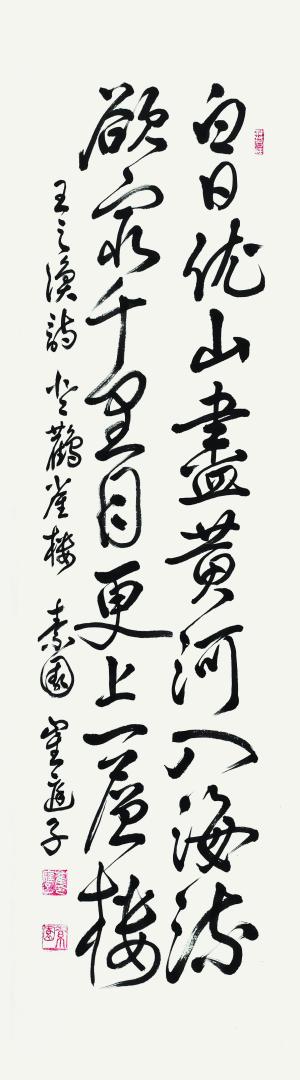 白日依山盡黃河入海流
欲窮千里目更上一層樓
王之渙詩 登鸛雀樓 素園 崔庭子